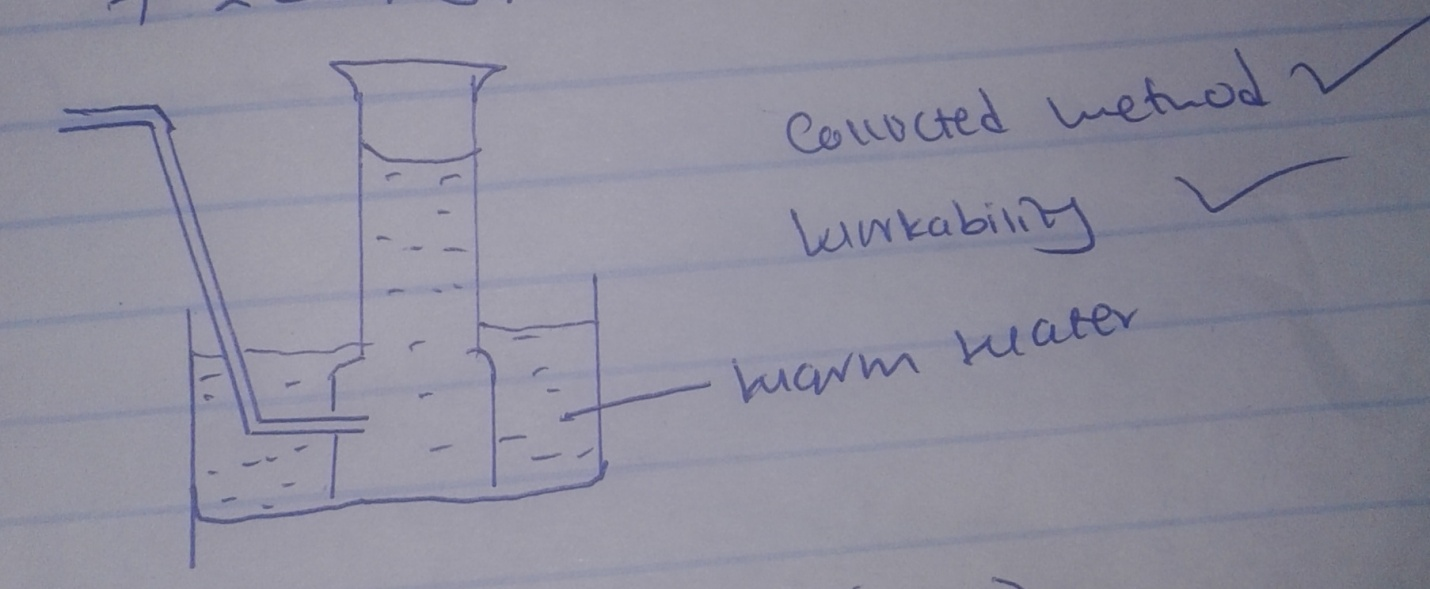 Collected method ✓
Workability ✓
warm water